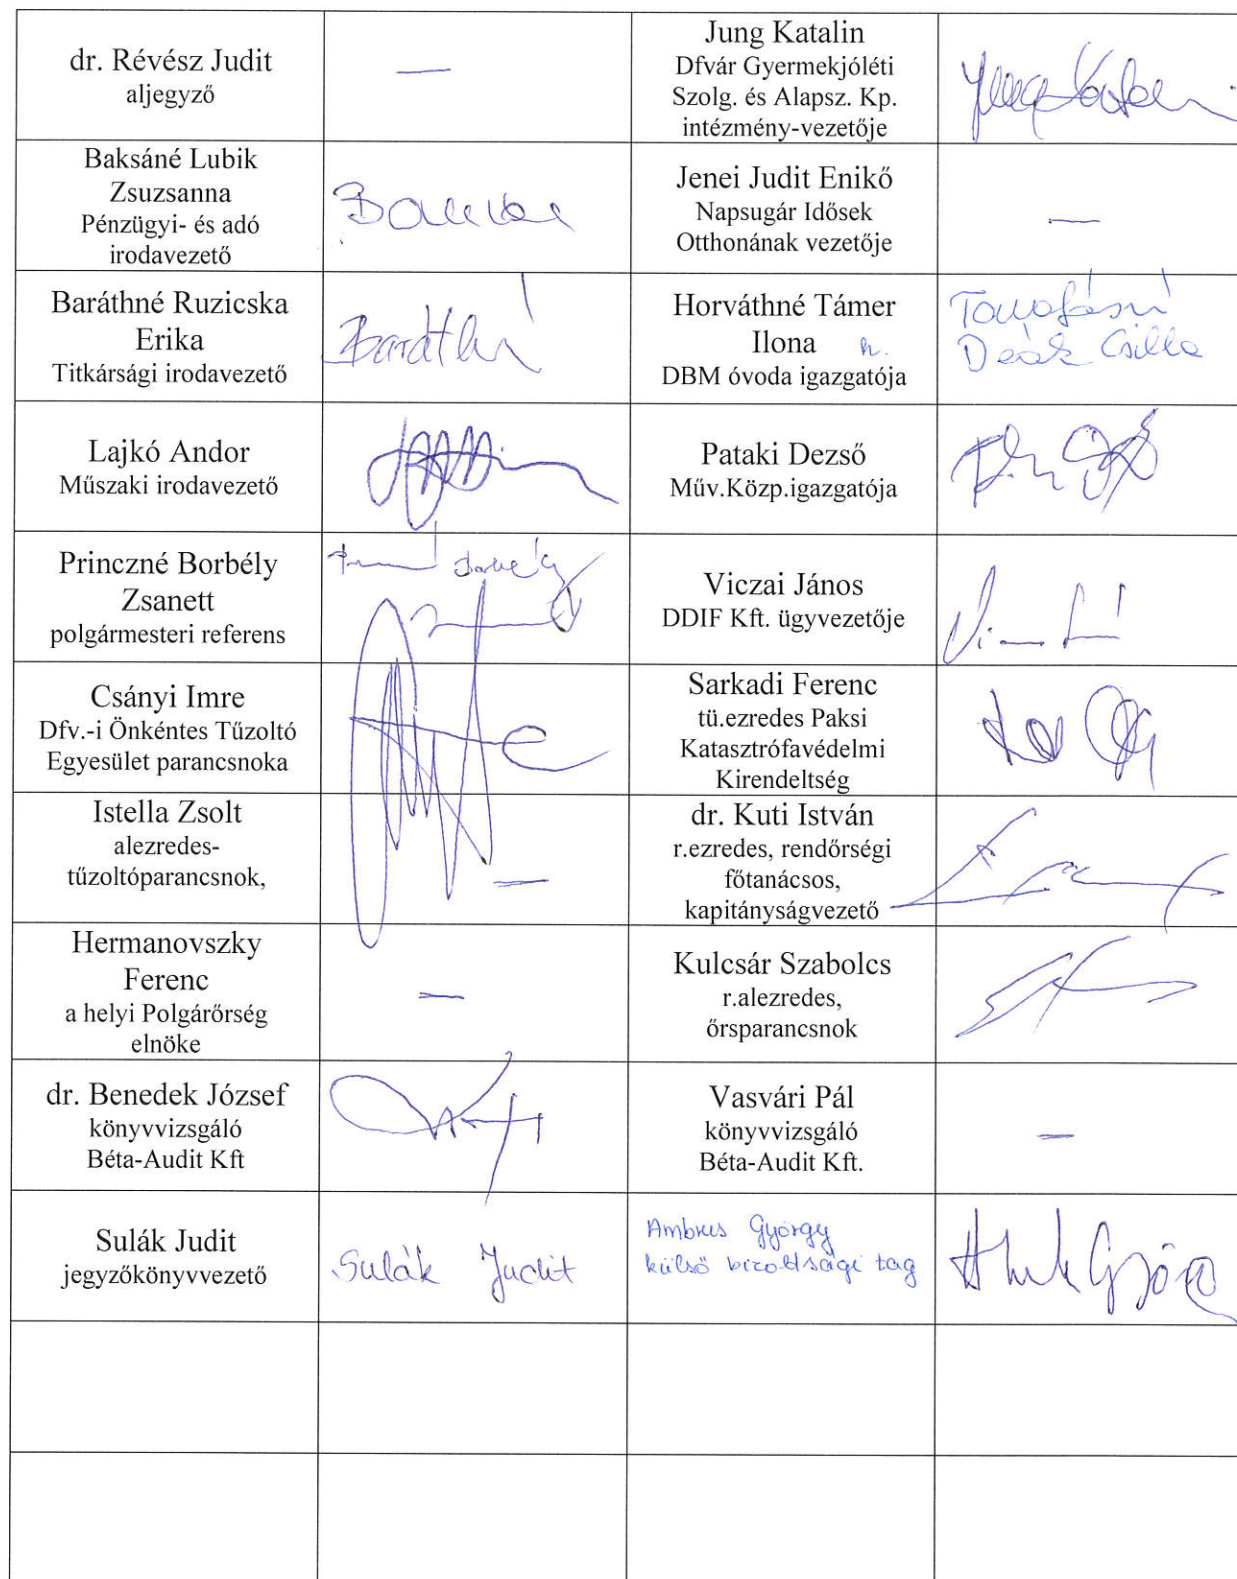 dr. Révész Judit
aljegyző
—
Jung Katalin
Dfvár Gyermekjóléti
Szolg. és Alapsz. Kp.
intézmény-vezetője
Baksáné Lubik
Zsuzsanna
Pénzügyi- és adó
irodavezető
Jenei Judit Enikő
Napsugár Idősek
Otthonának vezetője
—
Baráthné Ruzicska
Erika
Titkársági irodavezető
Baráthné
Horváthné Támer
Ilona h.
DBM óvoda igazgatója
Deák Csilla
Lajkó Andor
Műszaki irodavezető
Pataki Dezső
Műv.Közp.igazgatója
Princzné Borbély
Zsanett
polgármesteri referens
Viczai János
DDIF Kft. ügyvezetője
Csányi Imre
Dfv.-i Önkéntes Tűzoltó
Egyesület parancsnoka
Sarkadi Ferenc
tü.ezredes Paksi
Katasztrófavédelmi
Kirendeltség
Istella Zsolt
alezredes-
tűzoltóparancsnok,
—
dr. Kuti István
r.ezredes, rendőrségi
főtanácsos,
kapitányságvezető
Hermanovszky
Ferenc
a helyi Polgárőrség
elnöke
—
Kulcsár Szabolcs
r.alezredes,
őrsparancsnok
dr. Benedek József
könyvvizsgáló
Béta-Audit Kft
Vasvári Pál
könyvvizsgáló
Béta-Audit Kft.
—
Sulák Judit
jegyzőkönyvvezető
Sulák Judit
Ambrus György
külső bizottsági tag